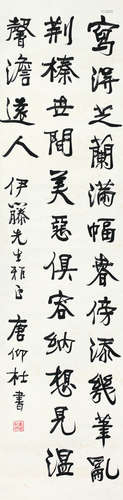 寫得芝蘭滿幅春傍添幾筆亂
荊榛世間美惡俱容納想見溫
馨澹遠人 伊藤先生雅正 唐仰杜書